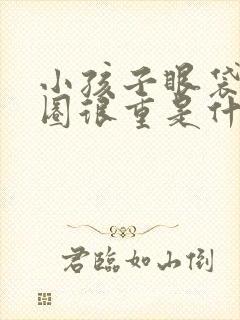 小孩子眼袋
圈很重是什
君臨如山倒